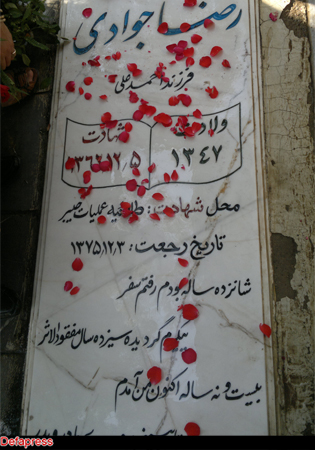 رضا جوادی
فرزند احمد علی
ولادت
۱۳۴۷
شهادت
۱۳۶۲/۱۲/۵
محل شهادت: طلائیه عملیات خیبر
تاریخ رجعت: ۱۳۷۵/۱۲/۳
شانزده ساله بودم رفتم سفر
پیکرم گردیده سیزده سال مفقودالاثر
بیست و نه ساله اکنون من آمدم
Defapress